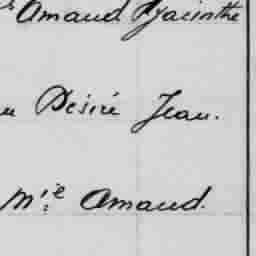 Amaud Hyacinthe
Désiré Jean.
M.ie Amaud.